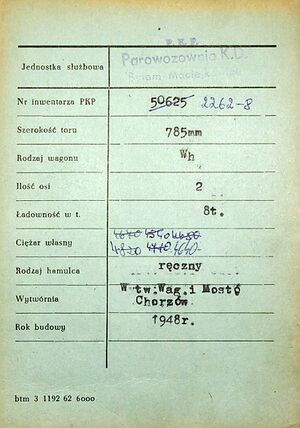 P.K.P.
Parowozownia K.D.
Jednostka służbowa
Nr inwentarza PKP 50625 2262-8
Szerokość toru 785mm
Rodzaj wagonu Wh
Ilość osi 2
Ładowność w t. 8t.
Ciężar własny
4820 4640
Rodzaj hamulca ręczny
Wytwórnia W tw.Wag.i Mostó
Chorzów
Rok budowy 1948r.
btm 3 1192 62 6000